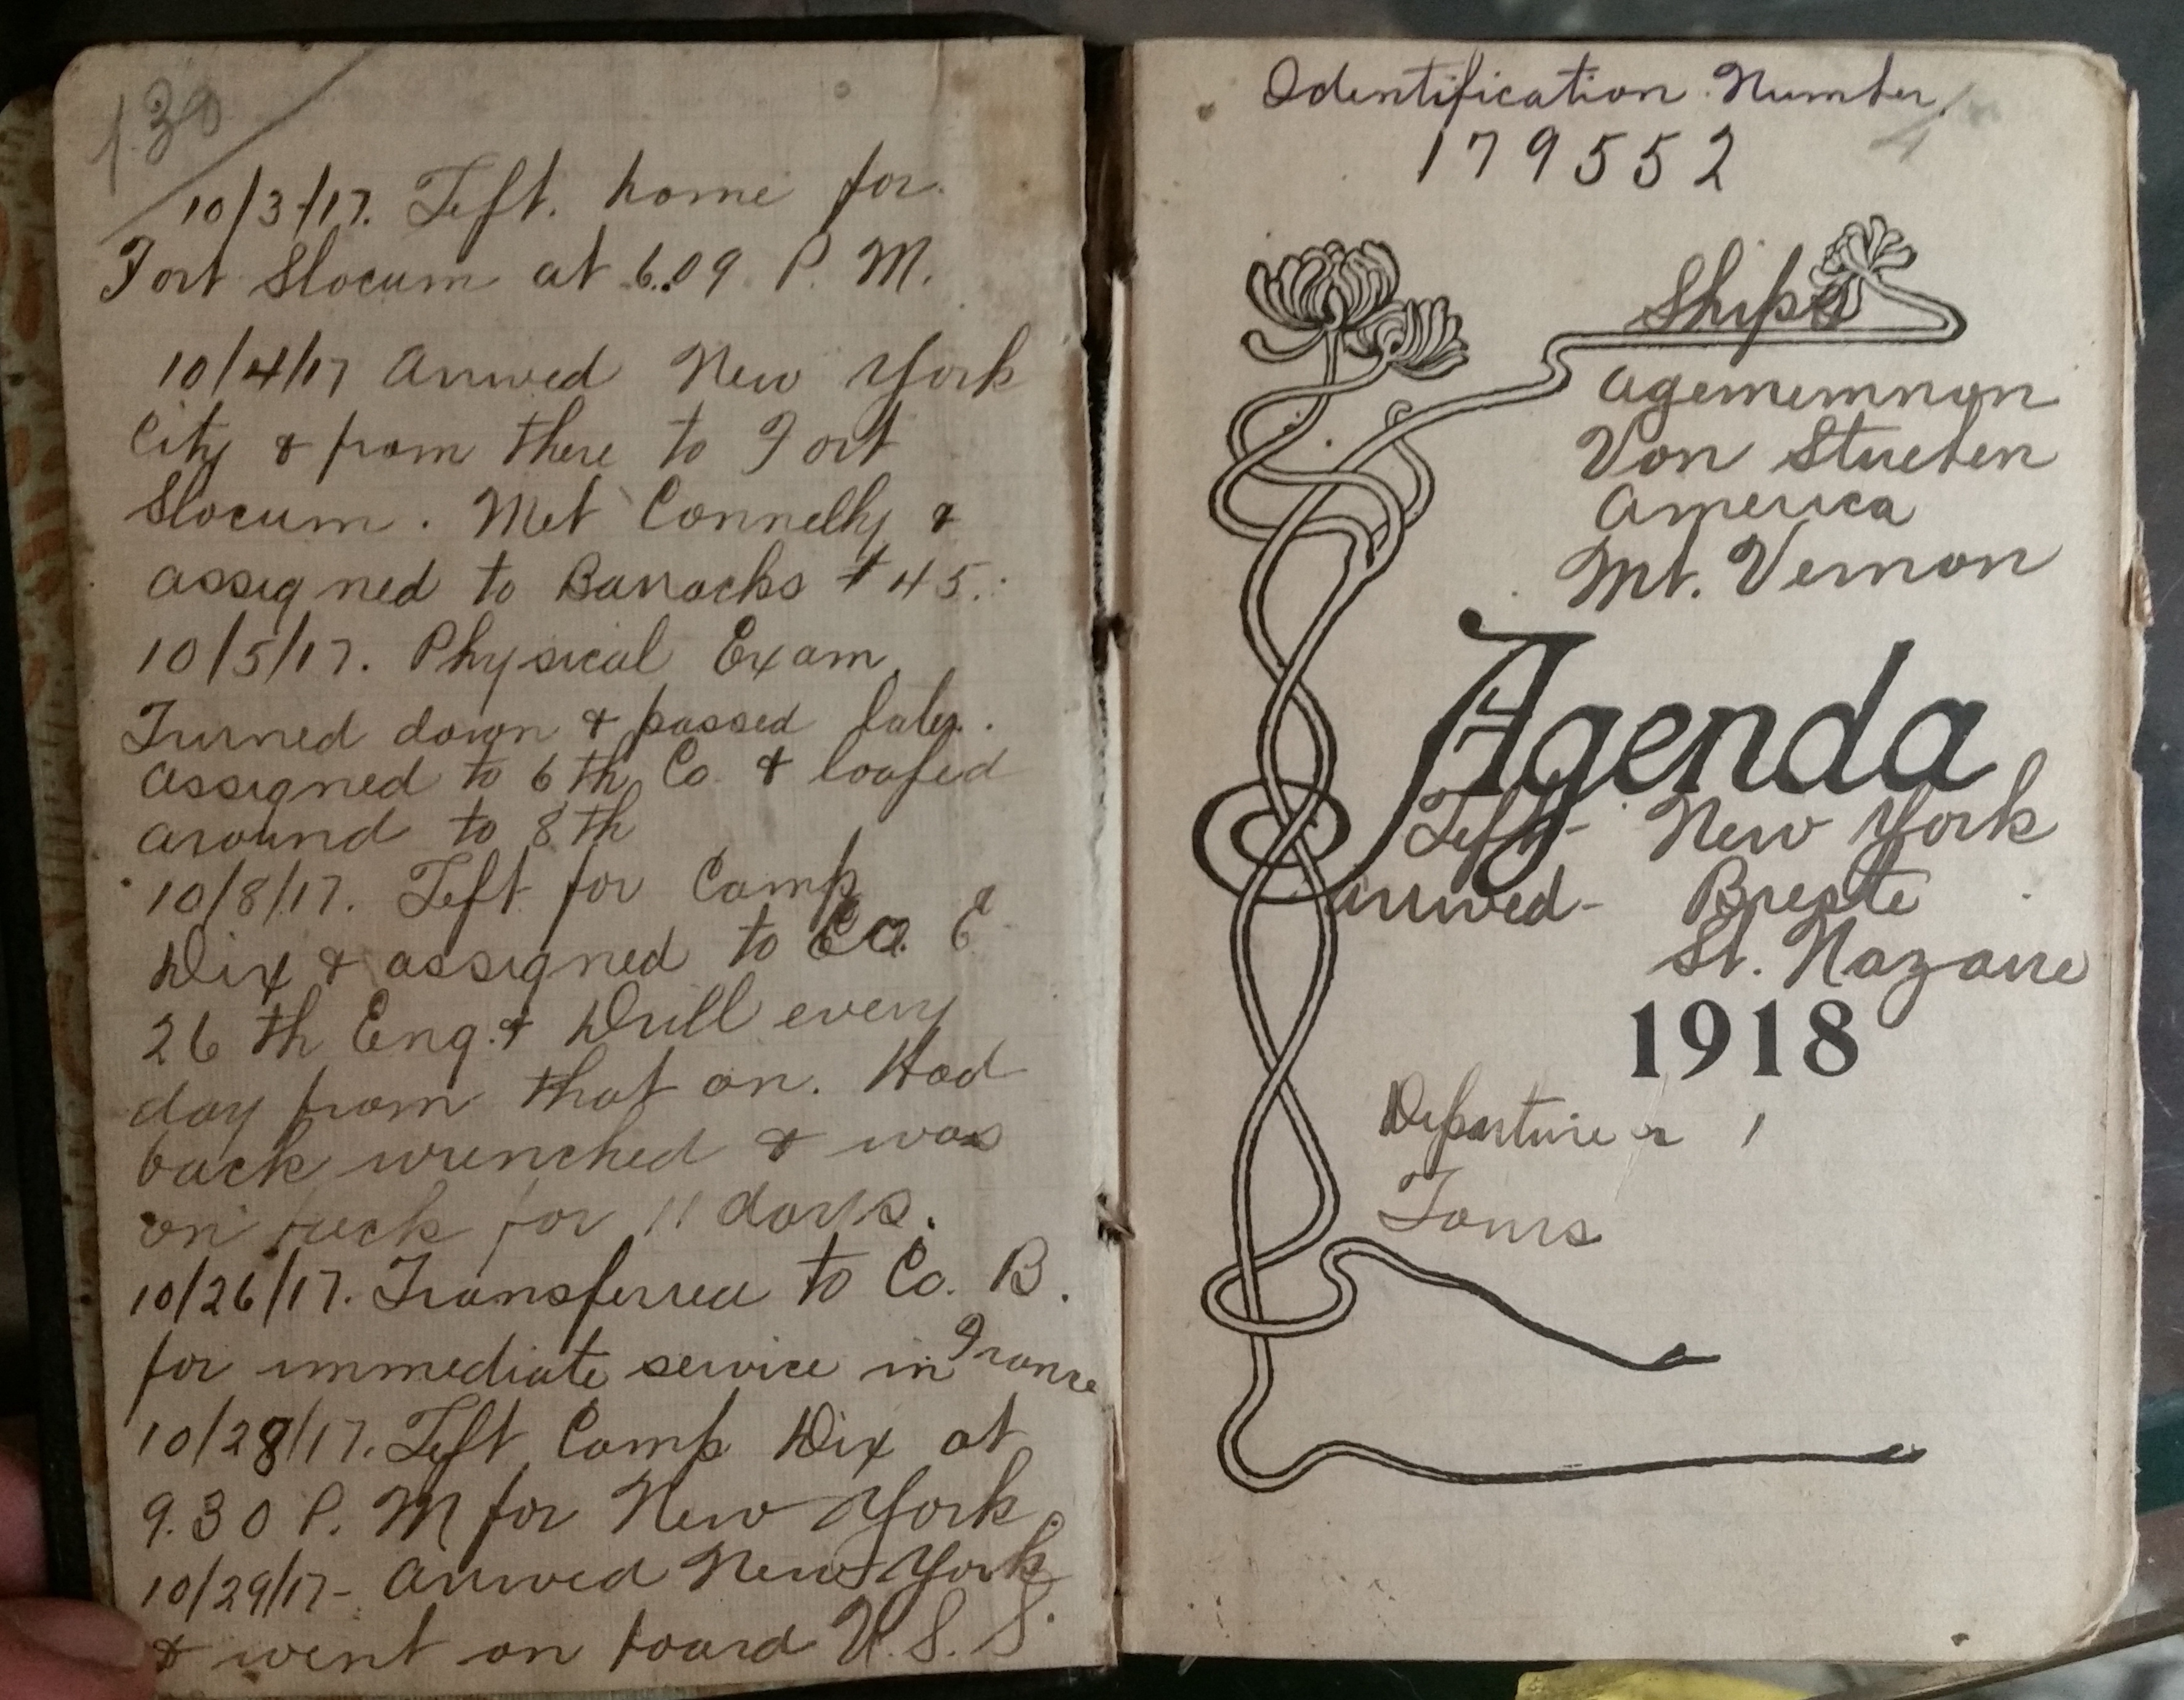 130
10/3/17. Left. home for
Fort Slocum at 6.09 P. M.
10/4/17 Arrived New York
City & from there to Fort
Slocum. Met Connelly &
assigned to Barracks #45.
10/5/17. Physical Exam
Turned down & passed later.
Assigned to 6th Co. & loafed
around to 8th
10/8/17. Left for Camp
Dix & assigned to Co. E
26th Eng. & Drill every
day from that on. Had
back wrenched & was
on sick for 11 days.
10/26/17. Transferred to Co. B.
for immediate service in France
10/28/17. Left Camp Dix at
9.30 P. M for New York
10/29/17- Arrived New York
& went on board U.S.S.
Identification Number
179552
Ships
Agememnon
Von Stueben
America
Mt. Vernon
Agenda
Left- New York
Arrived- Breste
St. Nazaire
1918
Departure
Tours